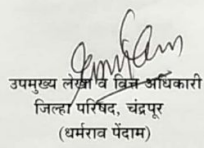 उपमुख्य लेखा व वित्त अधिकारी
जिल्हा परिषद, चंद्रपूर
(धर्मराव पेंदाम)